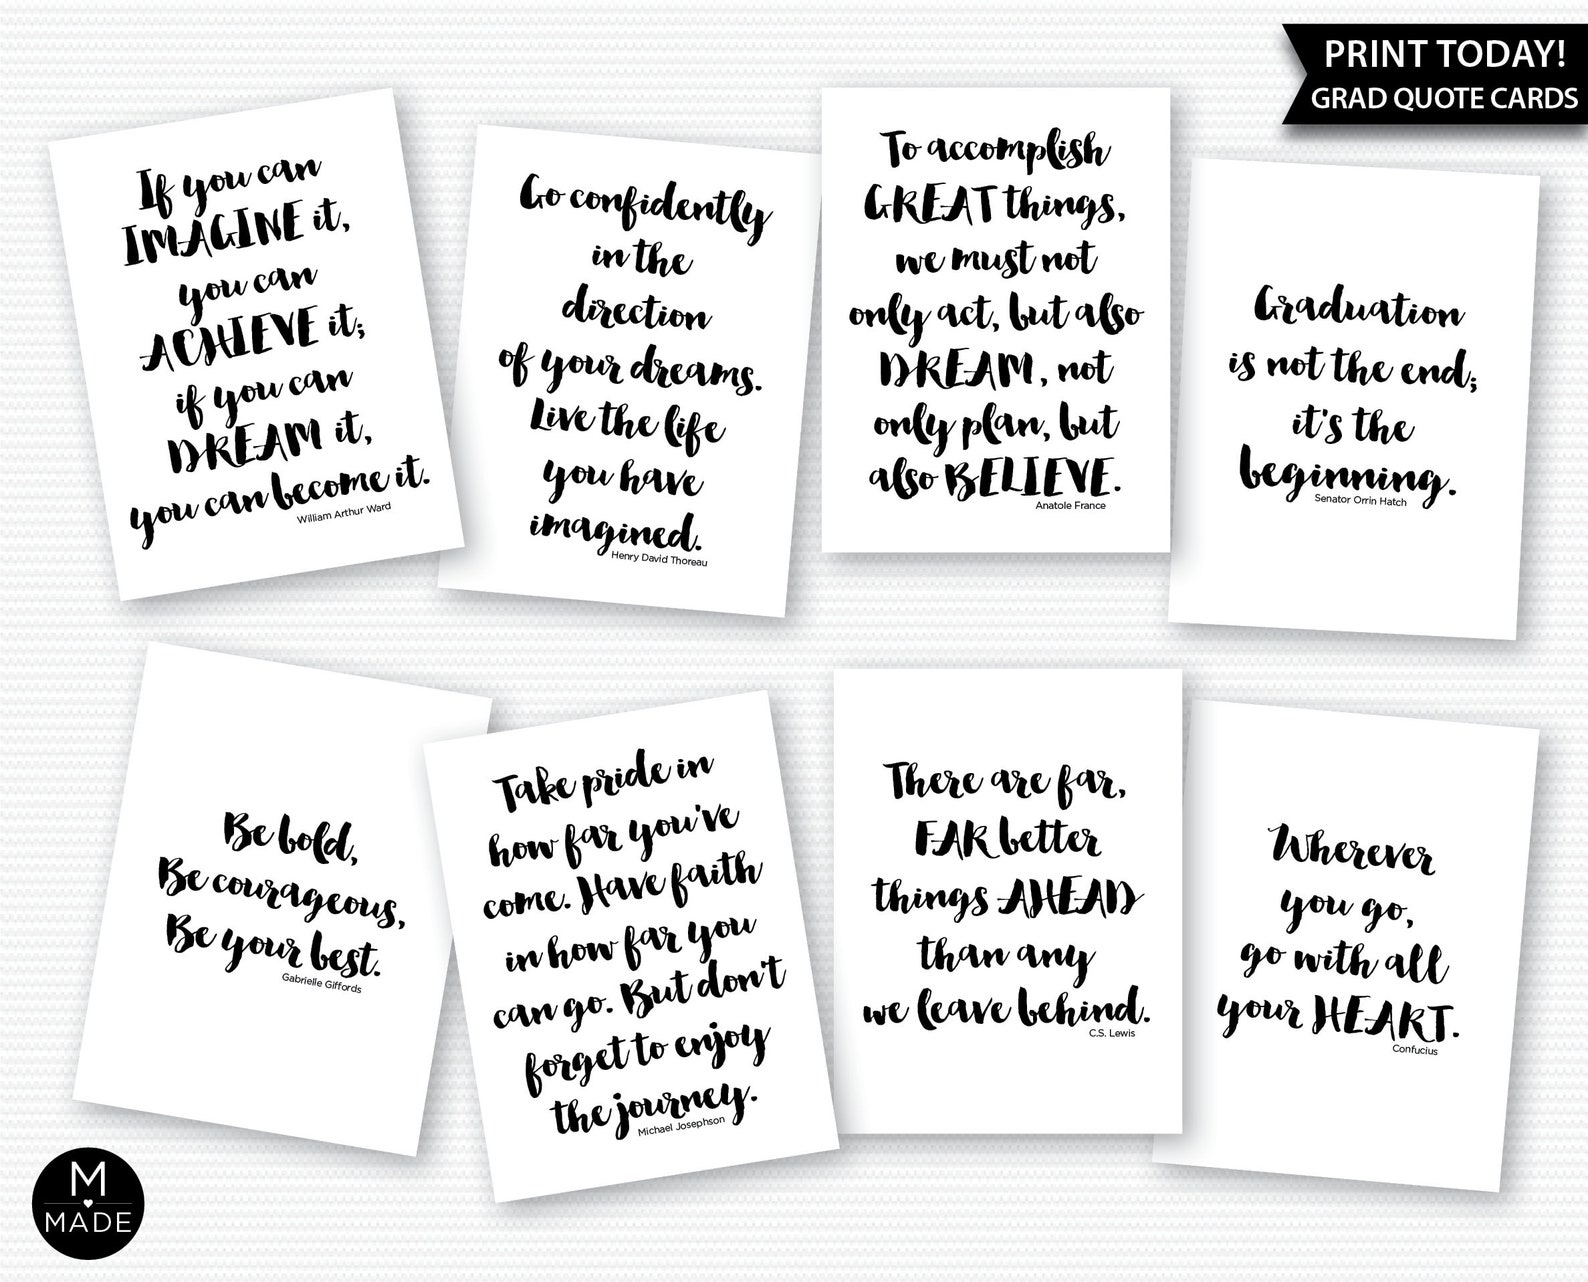 PRINT TODAY!
GRAD QUOTE CARDS
If you can
IMAGINE it,
you can
ACHIEVE it;
if you can
DREAM it,
you can become it.
William Arthur Ward
Go confidently
in the
direction
of your dreams.
Live the life
you have
imagined.
Henry David Thoreau
To accomplish
GREAT things,
we must not
only act, but also
DREAM, not
only plan, but
also BELIEVE.
Anatole France
Graduation
is not the end;
it's the
beginning.
Senator Orrin Hatch
Be bold,
Be courageous,
Be your best.
Gabrielle Giffords
Take pride in
how far you've
come. Have faith
in how far you
can go. But don't
forget to enjoy
the journey.
Michael Josephson
There are far,
FAR better
things AHEAD
than any
we leave behind.
C.S. Lewis
Wherever
you go,
go with all
your HEART.
Confucius
M
MADE